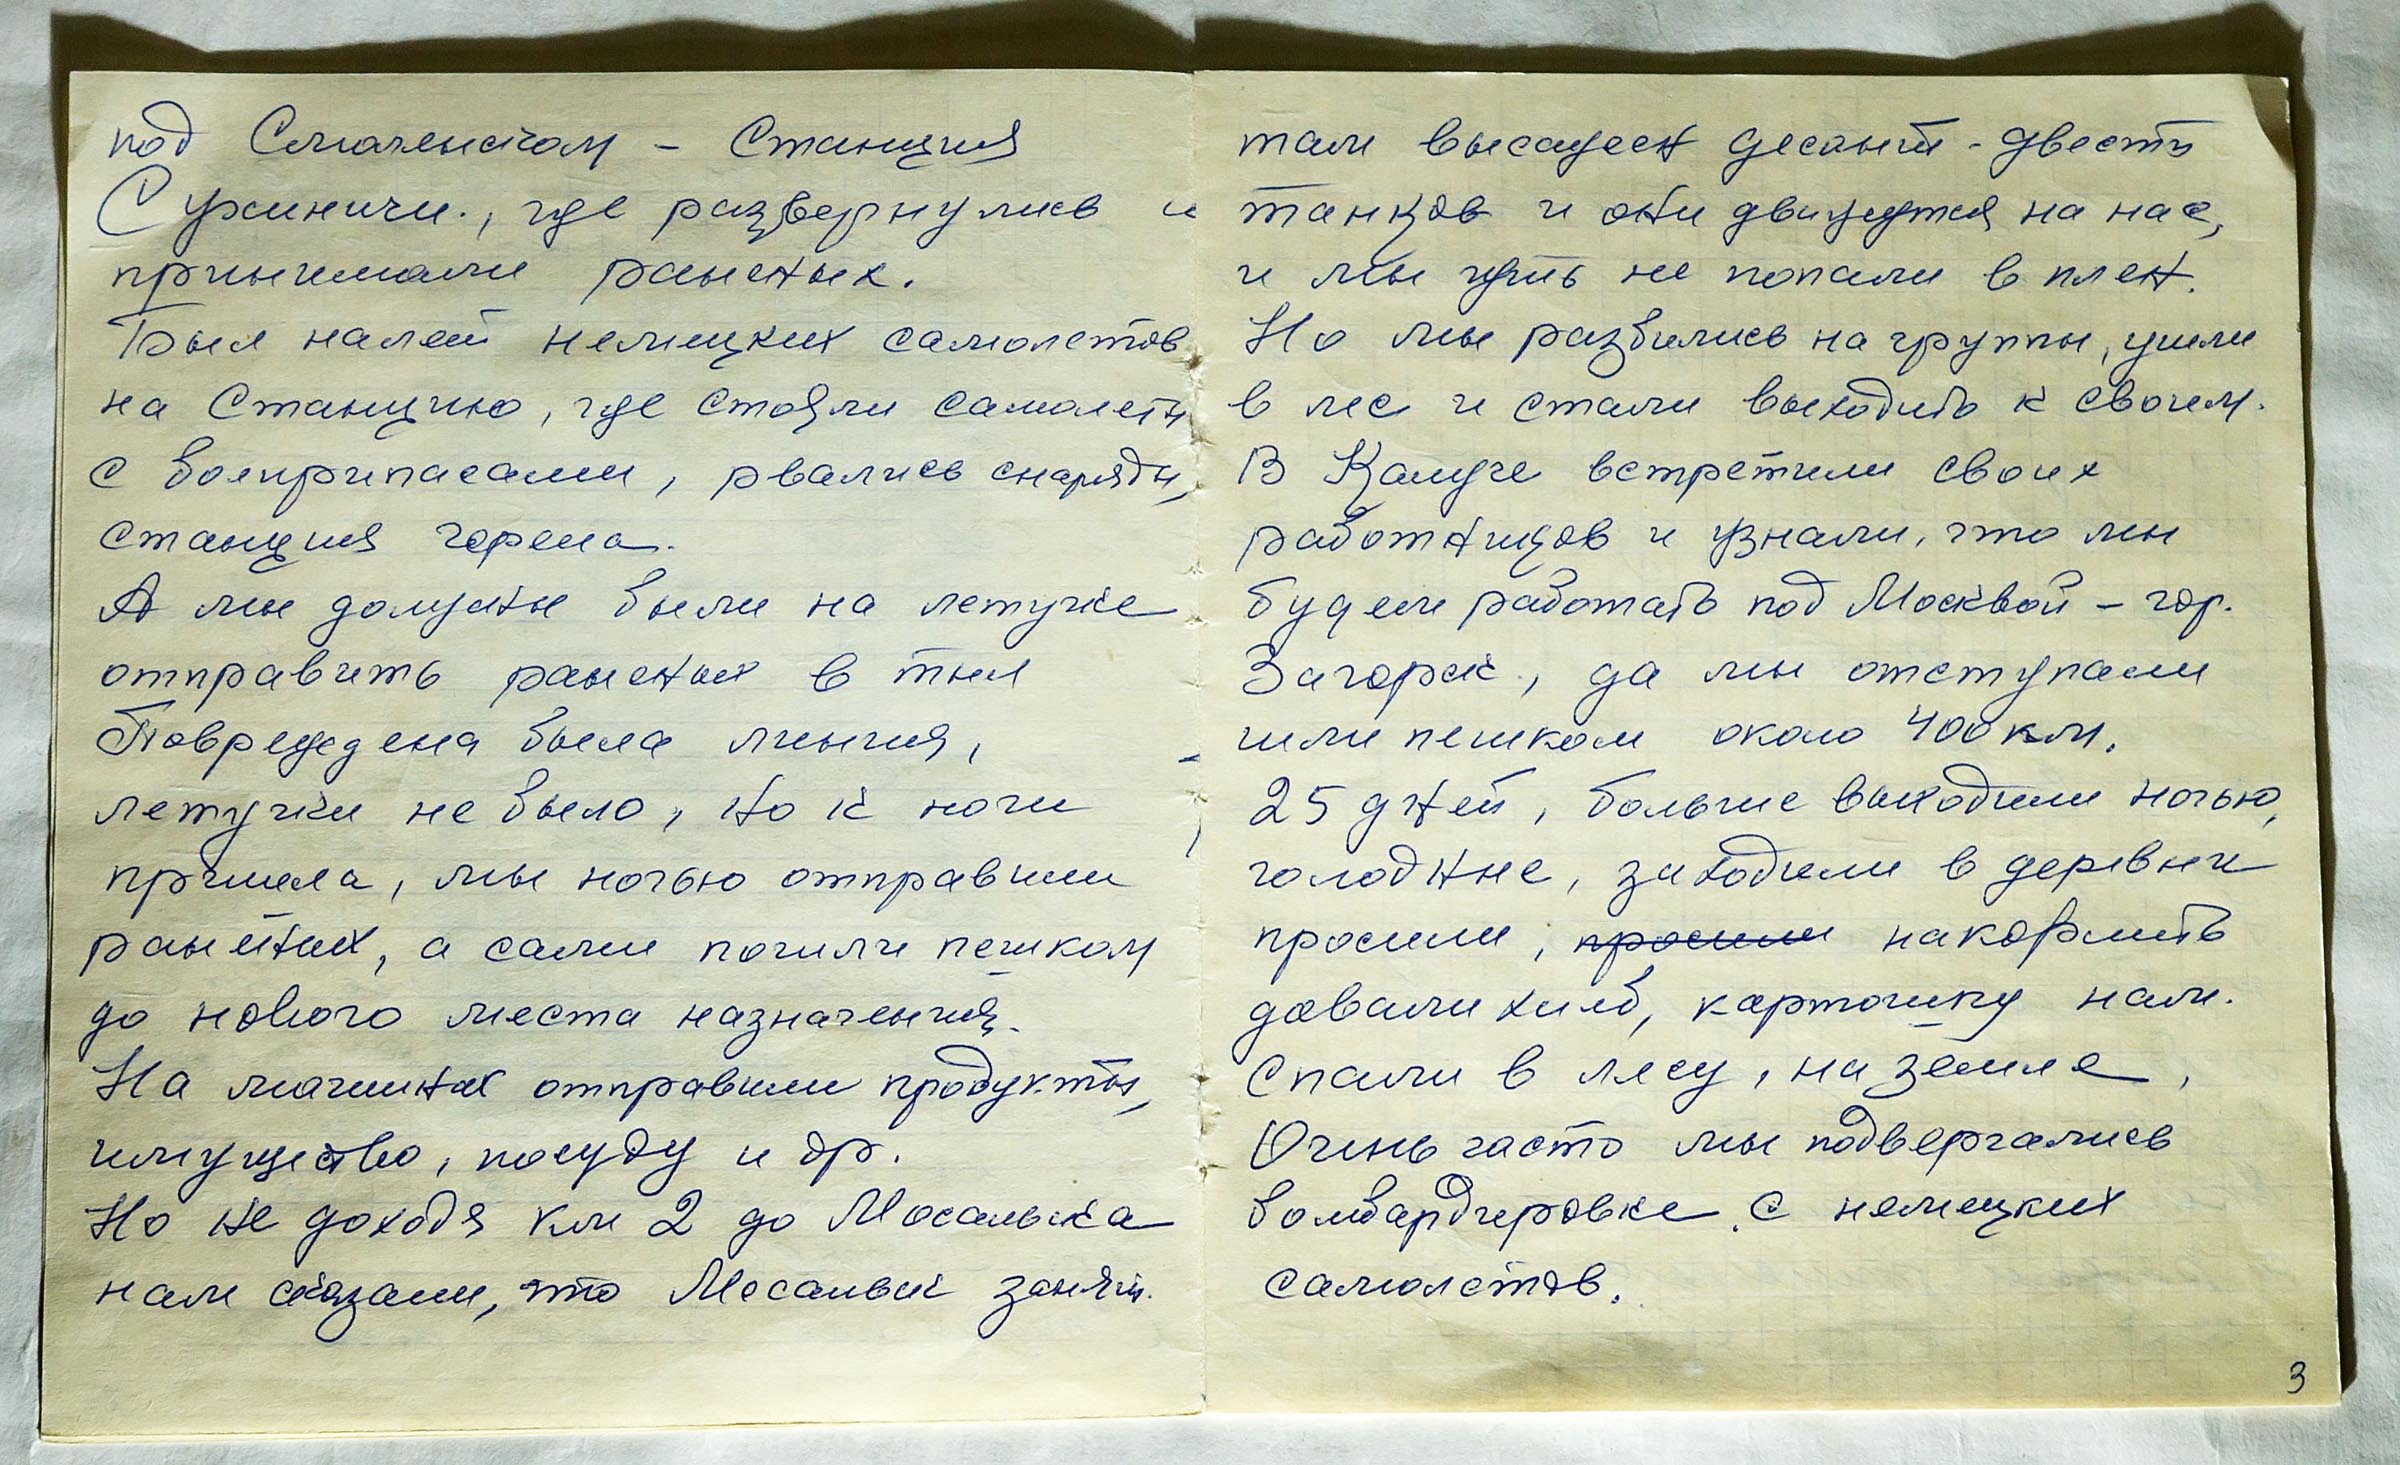 под Смоленском – Станция
Сухиничи., где развернулись и
принимали раненых.
Был налет немецких самолетов
на Станцию, где стояли самолеты
с боеприпасами, рвались снаряды,
станция горела.
А мы должны были на летучке
отправить раненых в тыл
Повреждена была линия,
летучки не было, но к ночи
пришла, мы ночью отправили
раненых, а сами пошли пешком
до нового места назначения.
На машинах отправили продукты,
имущество, посуду и др.
Но не доходя км 2 до Мосальска
нам сказали, что Мосальск занят.
там высажен десант - двести
танков и они движутся на нас,
и мы чуть не попали в плен.
Но мы разбились на группы, ушли
в лес и стали выходить к своим.
В Калуге встретили своих
работников и узнали, что мы
будем работать под Москвой – гор.
Загорск., да мы отступали
шли пешком около 400 км.
25 дней, больше выходили ночью,
голодные, заходили в деревни
просили, просили накормить
давали хлеб, картошку нам.
Спали в лесу, на земле,
Очень часто мы подвергались
бомбардировке с немецких
самолетов.
3